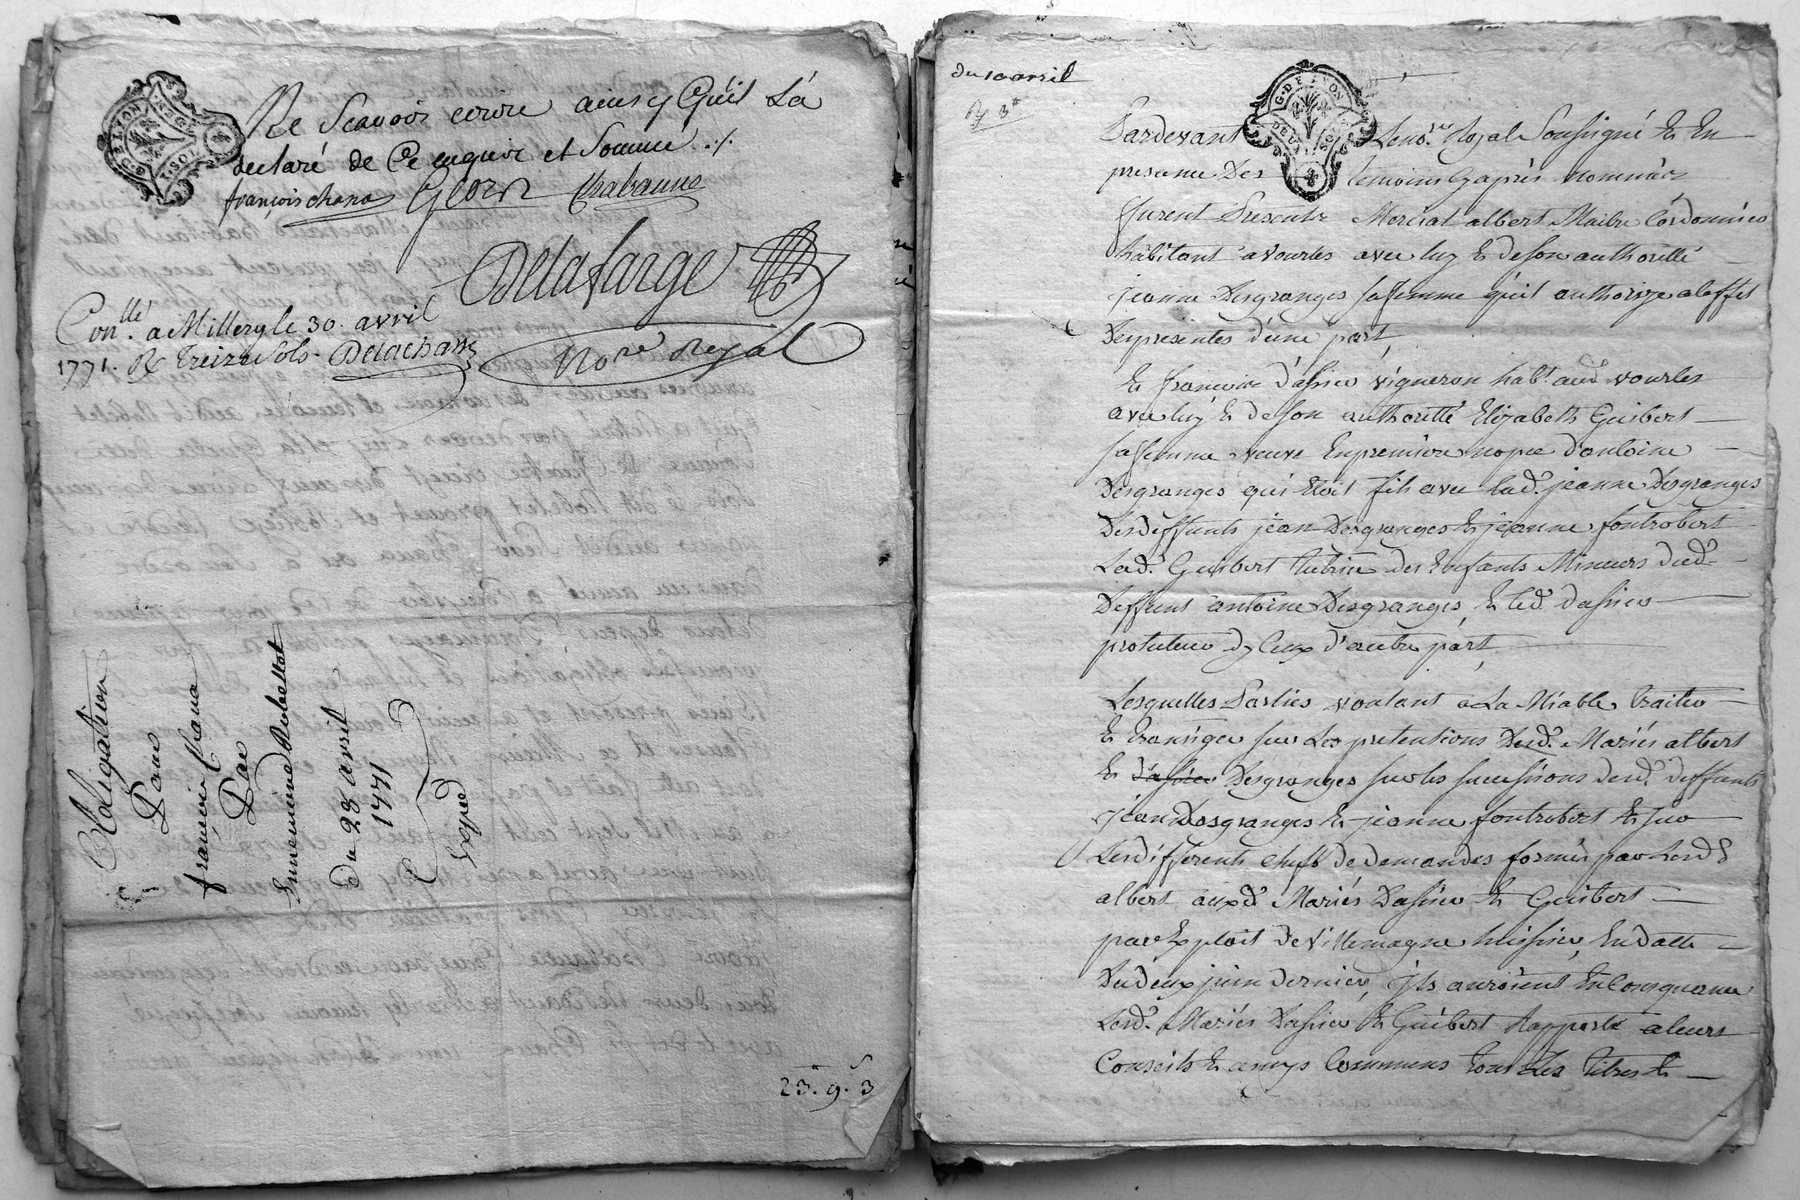 Ne Scavoir ecrire ainsy Qu'il La
declaré de Ce enquis et Sommé ./.
françois chana Gloru Chabanne
Delafarge
Con.llé a Millery le 30. avril
1771. R Treize Sols. Delachar
No.re Royal
Obligation
Pour
françois Chana
Par
Robellet
du 28 avril
1771
Exped
23. 9. 3
du 10 avril
Pardevant Le no.re Royal Soussigné Et En
presence Des temoins Cy après nommés
furent Presents Merciat albert Maitre Cordonnier
habitant a vourles avec luy & de son authorité
jeanne Desgranges sa femme qu'il authorize a leffet
Des presentes d'une part
Et francois Dassier vigneron hab.t aud. vourles
avec luy & de son authorité Elizabeth Guibert
sa femme veuve En premiere nopce d'antoine
Desgranges qui Etoit fils avec lad. jeanne Desgranges
Des deffunts jean Desgranges & jeanne fontrobert
Lad. Guibert tutrice des Enfants Mineurs dud.
Deffunt antoine Desgranges, & led. dassier
protuteur d'yceux d'autre part
Lesquelles Parties voulant a La Miable traiter
& transiger sur Les pretentions Desd. Mariés albert
& Desgranges sur les successions desd. deffunts
jean Desgranges & jeanne fontrobert & sur
Les differents chefs de demandes formés par Lesd.
albert auxd. Mariés Dassier & Guibert
par Exploit de Villemagne huissier, En datte
Du deux juin dernier, ils auroient En Consequence
Lesd. Mariés Dassier & Guibert Rapporté a leurs
Conseils & amys Communs tous Les titres &